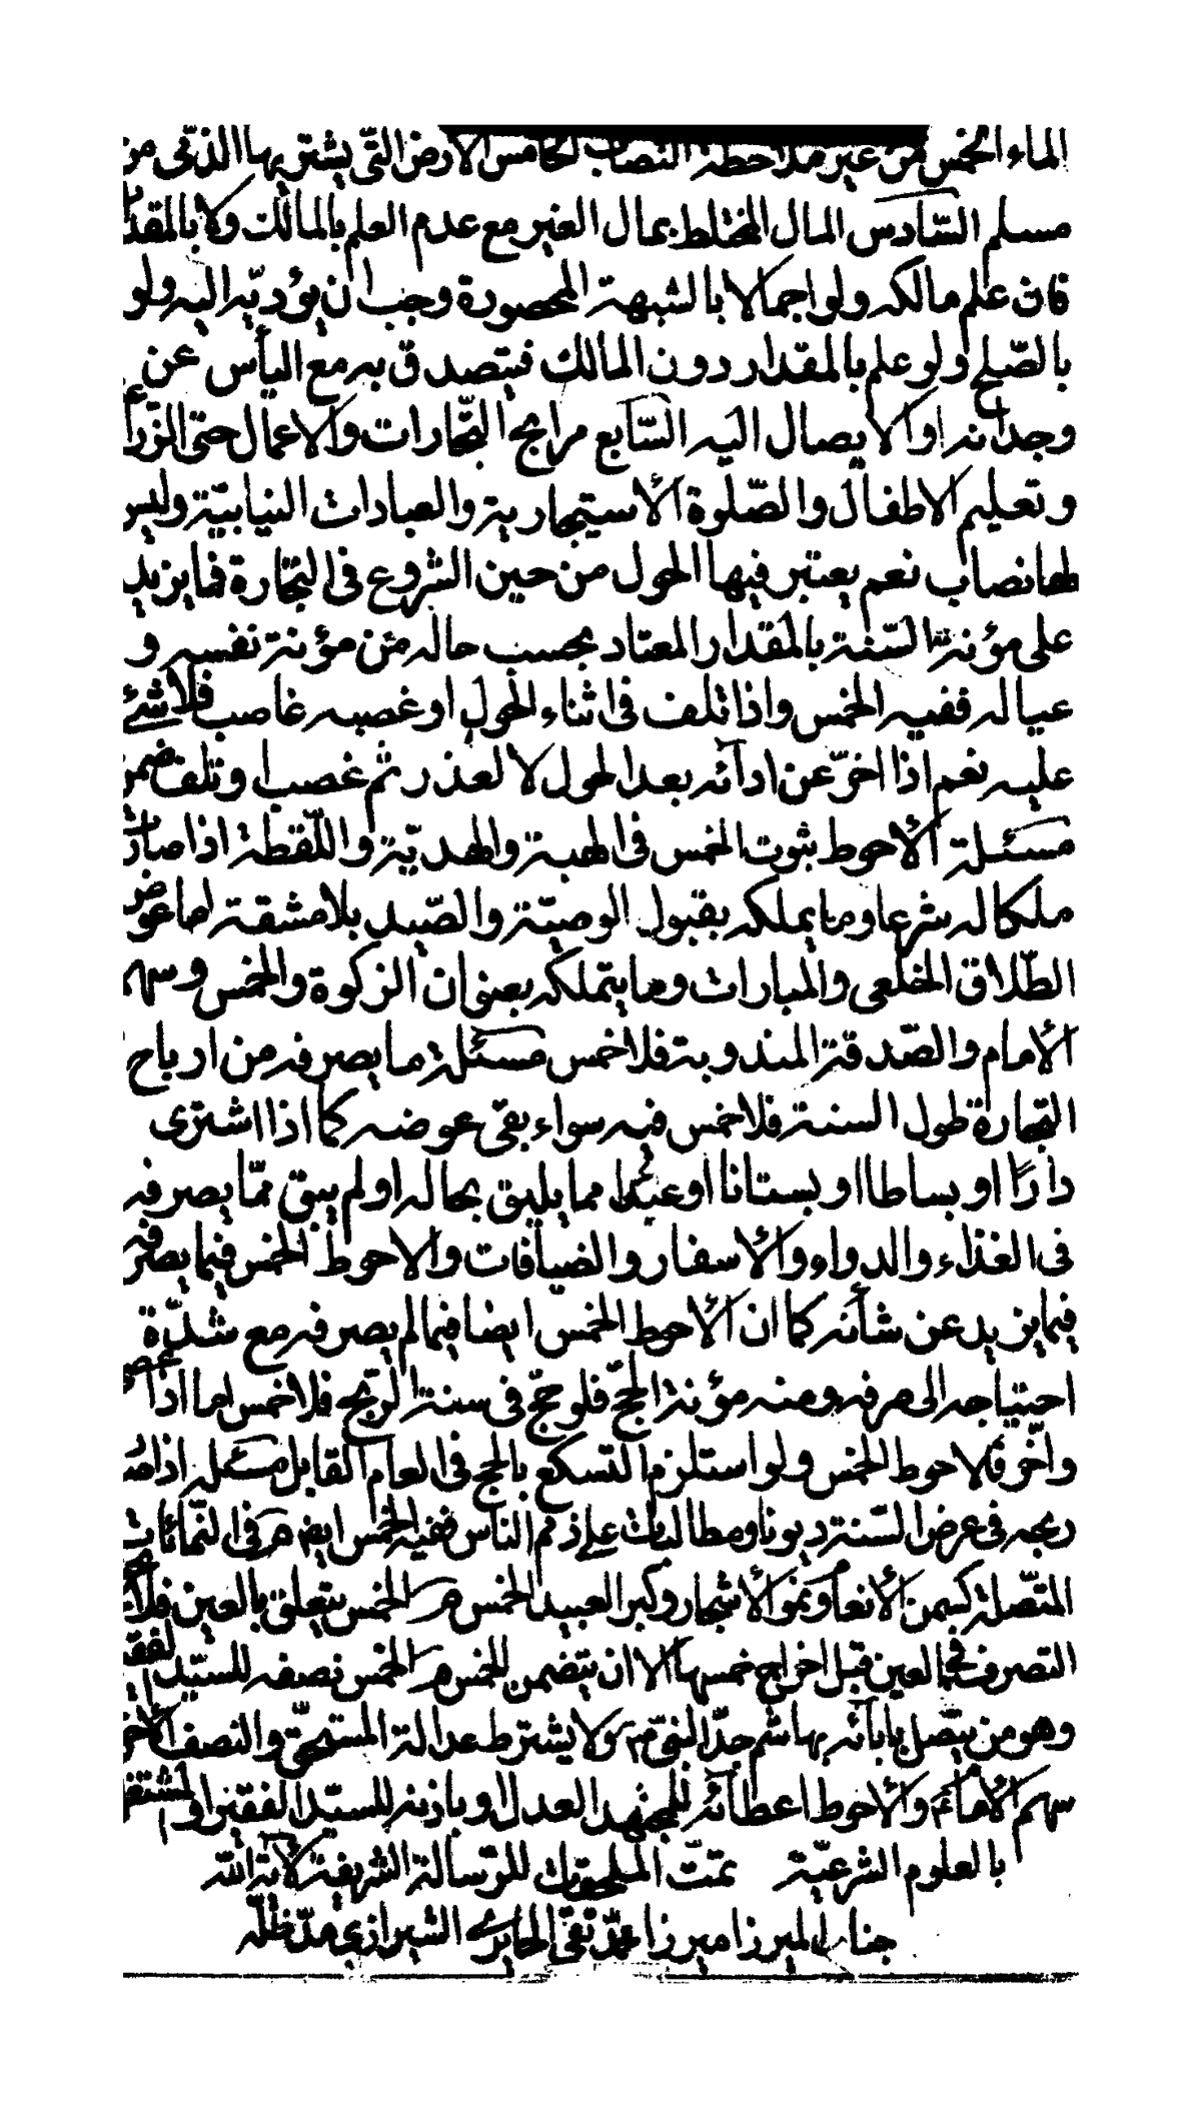 الماء الخمس من غير ملاحظة النصاب الخامس الارض التّى يشتريها الذمّى من
مسلم السّادس المال المختلط بمال الغير مع عدم العلم بالمالك ولا بالمقدار
فان علم مالكه ولو اجمالا بالشبهة المحصورة وجب ان يؤدّيه اليه ولو
بالصّلح ولو علم بالمقدار دون المالك فيتصدق به مع اليأس عن
وجدانه او الايصال اليه السّابع مرابح التّجارات والاعمال حتى الزّراعة
وتعليم الاطفال والصّلوة الأستيجارية والعبادات النيابيّة وليس
لها نصاب نعم يعتبر فيها الحول من حين الشروع فى التجّارة فما يزيد
على مؤنة السّنة بالمقدار المعتاد بحسب حاله من مؤنة نفسه و
عياله ففيه الخمس واذا تلف فى اثناء الحول او غصبه غاصب فلا شئ
عليه نعم اذا اخّر عن ادآئه بعد الحول لا لعذر ثم غصب او تلف ضمن
مسئلة الأحوط ثبوت الخمس فى الهبة والهديّة واللّقطة اذا صارت
ملكا له شرعا وما يملكه بقبول الوصيّة والصّيد بلا مشقة اما عوض
الطّلاق الخلعى والمبارات وما يتملكه بعنوان الزكوة والخمس وسهم
الأمام والصّدقة المندوبة فلا خمس مسئلة ما يصرفه من ارباح
التجارة طول السنة فلا خمس فيه سواء بقى عوضه كما اذا اشترى
دارًا او بساطا او بستانا او عبدا مما يليق بحاله او لم يبق ممّا يصرفه
فى الغذاء والدواء والأسفار والضيافات والاحوط الخمس فيما يصرفه
فيما يزيد عن شأنه كما ان الأحوط الخمس ايضا فيما لم يصرفه مع شدّة
احتياجه الى صرفه ومنه مؤنة الحجّ فلو حجّ فى سنة الرّبح فلا خمس اما اذا عصى
واخّر فالاحوط الخمس ولو استلزم التسكع بالحج فى العام القابل مسئله اذا صار
ربحه فى عرض السّنة ديونا ومطالبات على ذمم الناس ففيه الخمس ايض مر فى النّمائات
المتّصلة كسمن الأنعام ونمو الأشجار وكبر العبيد الخمس مر الخمس يتعلق بالعين فلا
التصرف فى العين قبل اخراج خمسها الا ان يتضمن للخمس مر الخمس نصفه للسيّد الفقير
وهو من يتّصل بابآئه بهاشم جدّ النبّى ص ولا يشترط عدالة المستحّق والنصف الأخر
سهم الأمام ع والأحوط اعطآئه للمجتهد العدل او باذنه للسيّد الفقير او المشتغل
بالعلوم الشرعيّة تمّت الملحقات للرّسالة الشريفة لآية اللّه
جناب الميرزا ميرزا محمّد تقى الحايرى الشيرازى مدّ ظلّه